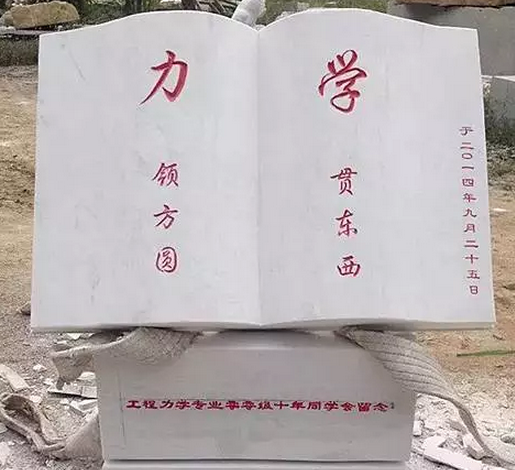 力学
领方圆
贯东西
于二〇一四年九月二十五日
工程力学专业零零级十年同学会留念